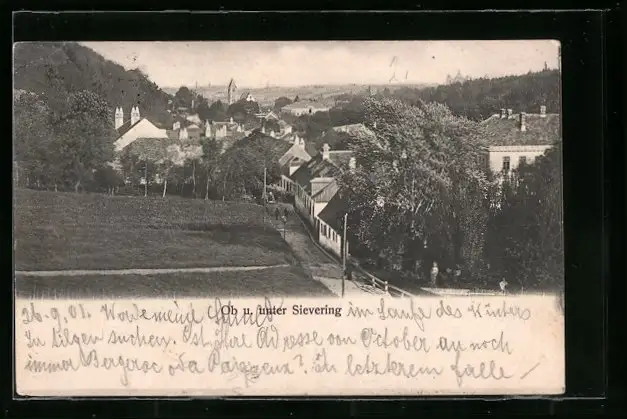 Ob u. unter Sievering
26.9.01. Werde meine im Laufe des Winters
zu tilgen suchen. Ist Ihre Adresse von October an noch
immer Bergerac oda ? Im letzterem Falle